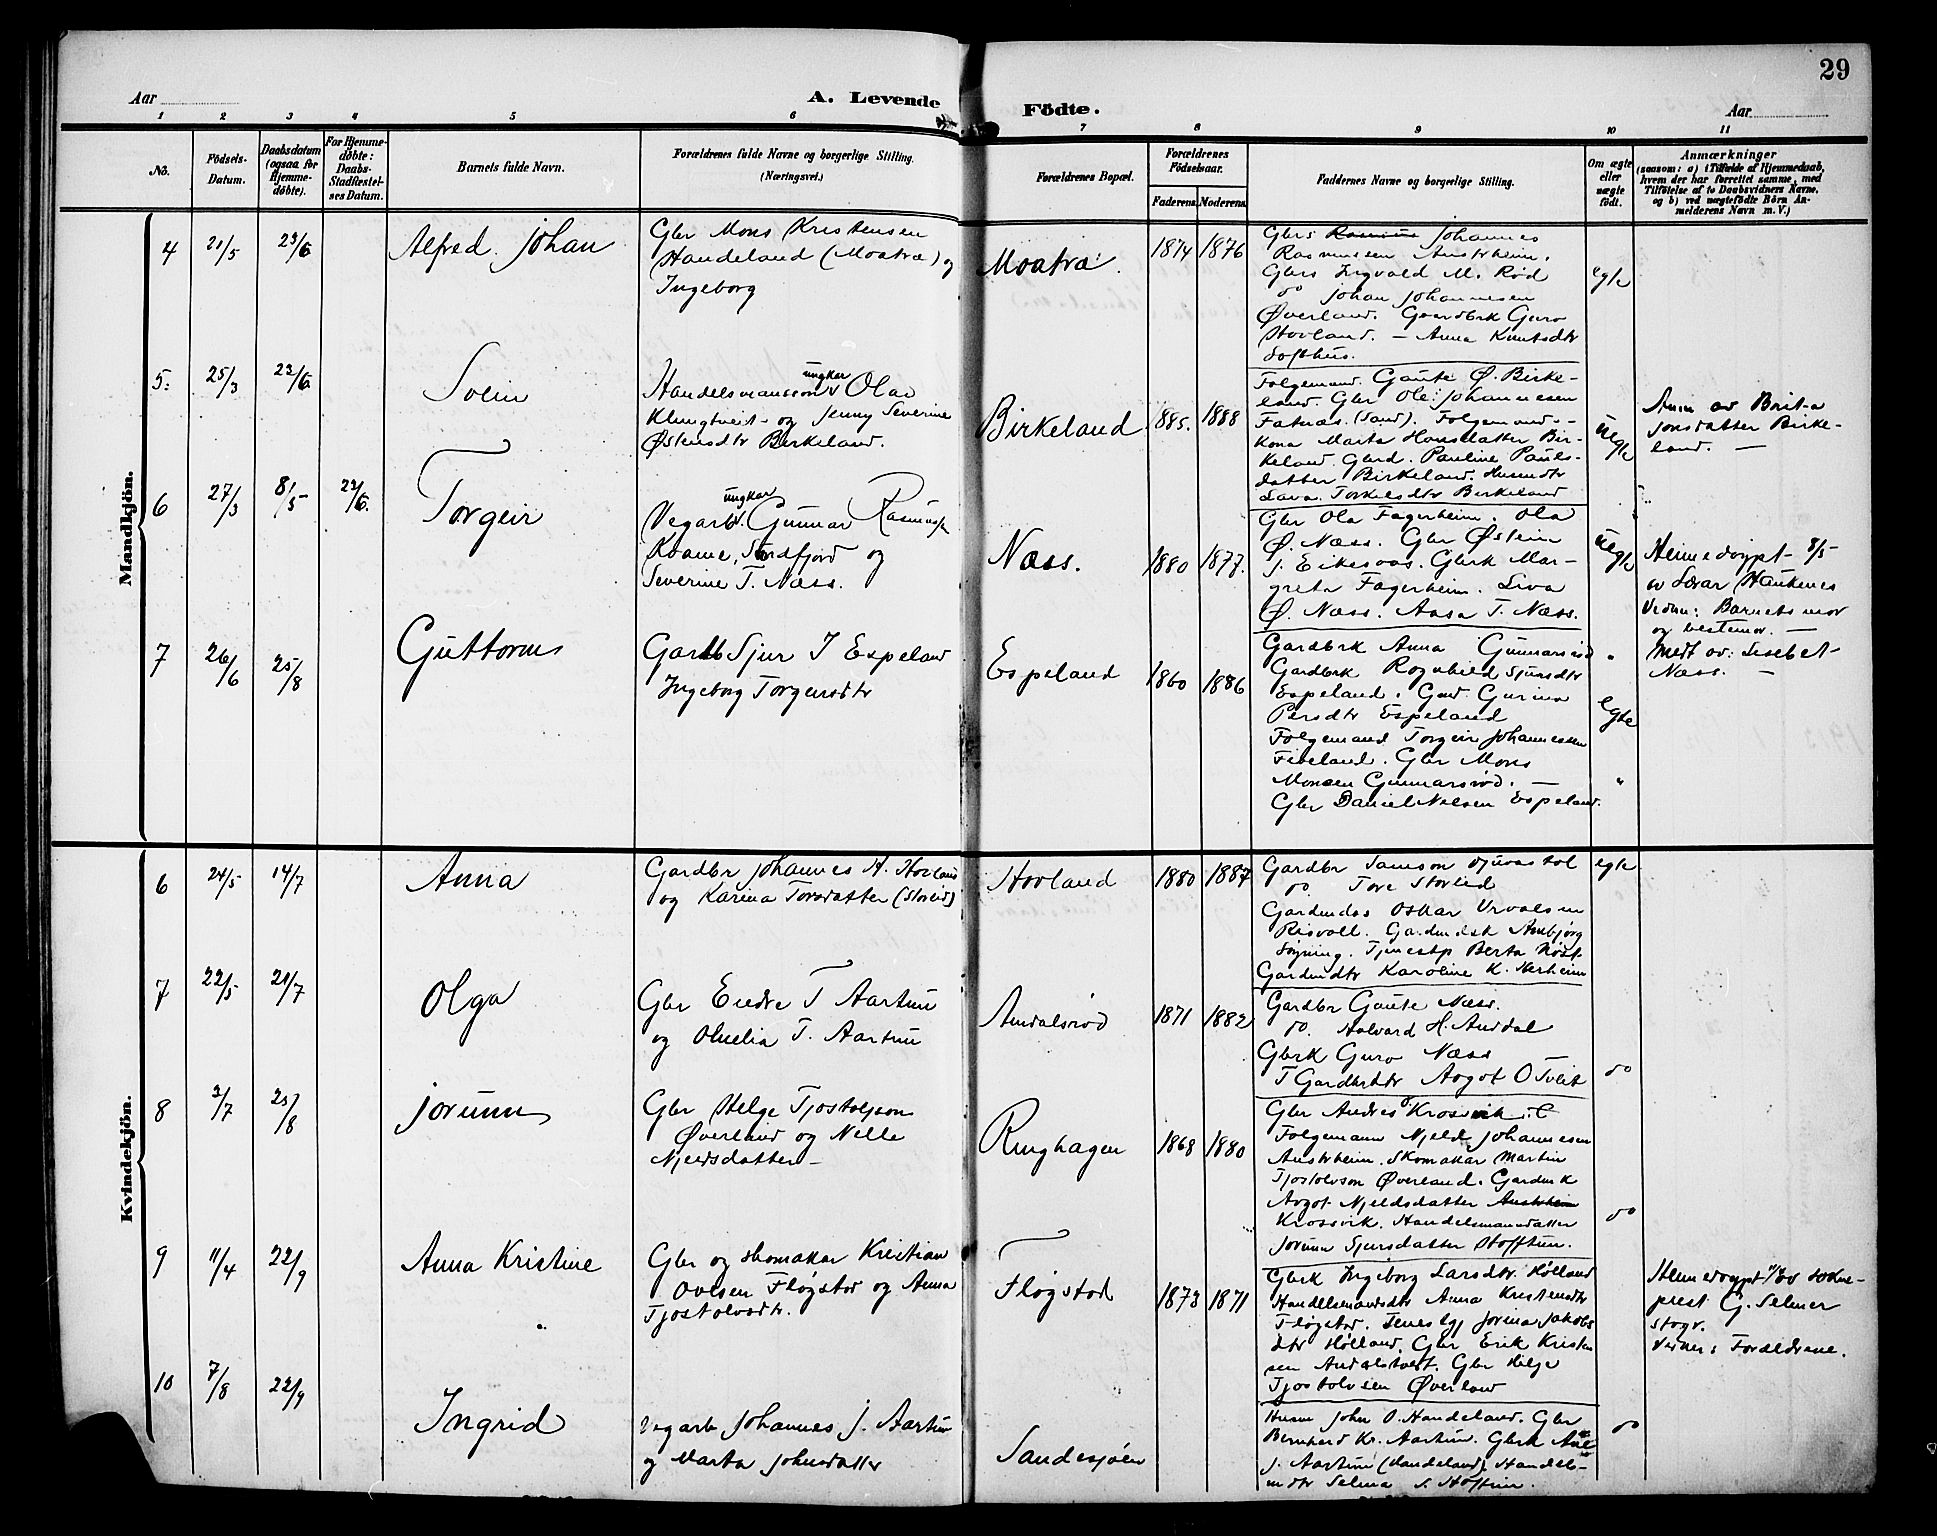 29
Aar
A. Levende
Födte.
Aar
1 2 3 4 5 6 7 8 9 10 11
No.
Födsels-
Datum.
Daabsdatum
(ogsaa for
Hjemme-
døbte).
For Hjemme-
døbte:
Daabs-
Stadfæstel-
ses Datum.
Barnets fulde Navn.
Forældrenes fulde Navne og borgerlige Stilling.
(Næringsvei.)
Forældrenes Bopæl.
Forældrenes
Födselsaar.
Faderens.
Moderens.
Faddernes Navne og borgerlige Stilling.
Om ægte
eller
uægte
födt.
Anmærkninger
(saasom: a) i Tilfælde af Hjemmedaab,
hvem der har forrettet samme, med
Tilföielse af to Daabsvidners Navne,
og b) ved uægtefödte Börn An-
melderens Navn m. V.)
Mandkjön.
4
21/5
23/6
Alfred Johan
Gbr Mons Kristensen
Handeland (Moatræ) og
Ingeborg
Moatræ
1874
1876
Gbrs Rasmus Johannes
Rasmussen Austrheim.
Gbrs Ingvald M. Rød
do Johan Johannesen
Øverland. Gaardbrk Guro
Hovland. – Anna Knutsdtr
Softhus.
egte
5.
25/3
23/6
Svein
Handelsmansson ungkar Olav
Klungtveit og Jenny Severine
Østensdtr Birkeland.
Birkeland
1885.
1888
Folgemand. Gaute Ø. Birke-
land. Gbr Ole Johannesen
Fatnæs. (Sand). Folgemands-
kona Marta Hansdatter Bir-
keland. Gbrd. Pauline Pauls-
datter Birkeland. Husmdtr
Lava Torkelsdtr Birkeland
uegte
Anm av Brita
Jonsdatter Birke-
land. –
6
27/3
8/5
23/6.
Torgeir
Vegarb. ungkar Gunnar Rasmuss.
Kvame, Sandfjord og
Severine T. Næss.
Næss.
1880
1877.
Gbr Ola Fagerheim. Ola
Ø. Næss. Gbr Østein
J. Eikesaas. Gbrk Mar-
greta Fagerheim. Liva
Ø. Næss. Aasa T. Næss.
uegte
Heimedøypt 8/5
av Lærar Haukenes
Vedne: Barnets mor
og bestemor. –
Meldt av: Lisebet
Næss. –
7
26/6
25/8
Guttorm
Gardb Sjur I Espeland
Ingeborg Torgeirsdtr
Espeland
1860
1886
Gardbrk Anna Gunnarsrød
Gardbrk Rognhild Sjursdtr
Espeland. Gard. Gurina
Persdtr Espeland
Folgemand Torgeir Johannessen
Fiveland. Gbr Mons
Monsen Gunnarsrød. –
Gbr Daniel Nelsen Espeland.
egte
Kvindekjön.
6
24/5
14/7
Anna
Gardbr Johannes A. Hovland
og Karina Torsdatter (Storlid)
Hovland
1880
1887
Gardbr Samson Djuvastøl
do Tore Storlid
Oskar
Risvoll.
Berta
Karoline K. Herheim
egte
7
22/5
21/7
Olga
Gbr Endre T Aartun
og Omelia T. Aartun
Andalsrød
1871
1882
Gardbr Gaute Næss.
do. Halvard H. Austdal
Gbrk Guro Næss
Aagot O Tveit
do
8
3/7
25/8
Jorunn
Gbr Helge Tjostolfson
Øverland og Nelle
Njeldsdatter –
Ringhagen
1868
1880
Gbr Andres Krossvik
Folgemann Njeld Johannesen
Austrheim. Skomakar Martin
Tjostolvson Øverland. Gardmk
Aagot Njeldsdatter Austrheim
Krossvik. Handelsmannsdatter
Jorunn Sjursdatter Hofftun.
do
9
11/4
22/9
Anna Kristine
Gbr og skomakar Kristian
Ovesen Fløgstad og Anna
Tjostolvsdtr.
Fløgstad
1873
1871
Gbrk Ingeborg Larsdtr Hølland
Handelsmandsdtr Anna Kristensdtr
Fløgstad. Jorina Jakobs
dtr Hølland. Gbr Erik Kristen
sen Andalstveit. Gbr Helge
Tjostolvsen Øverland
Heimedøypt av sokne-
prest G. Selmer
Vedner: Forældrene.
10
7/8
22/9
Ingrid
Vegarb Johannes J. Aartun
og Marta Johnsdatter
Sandesjøen
Husm John O. Handeland. Gbr
Bernhard Kr. Aartun. Gbrk
J. Aartun (Handeland). Handels-
mdtr Selma S. Hoftun.
do